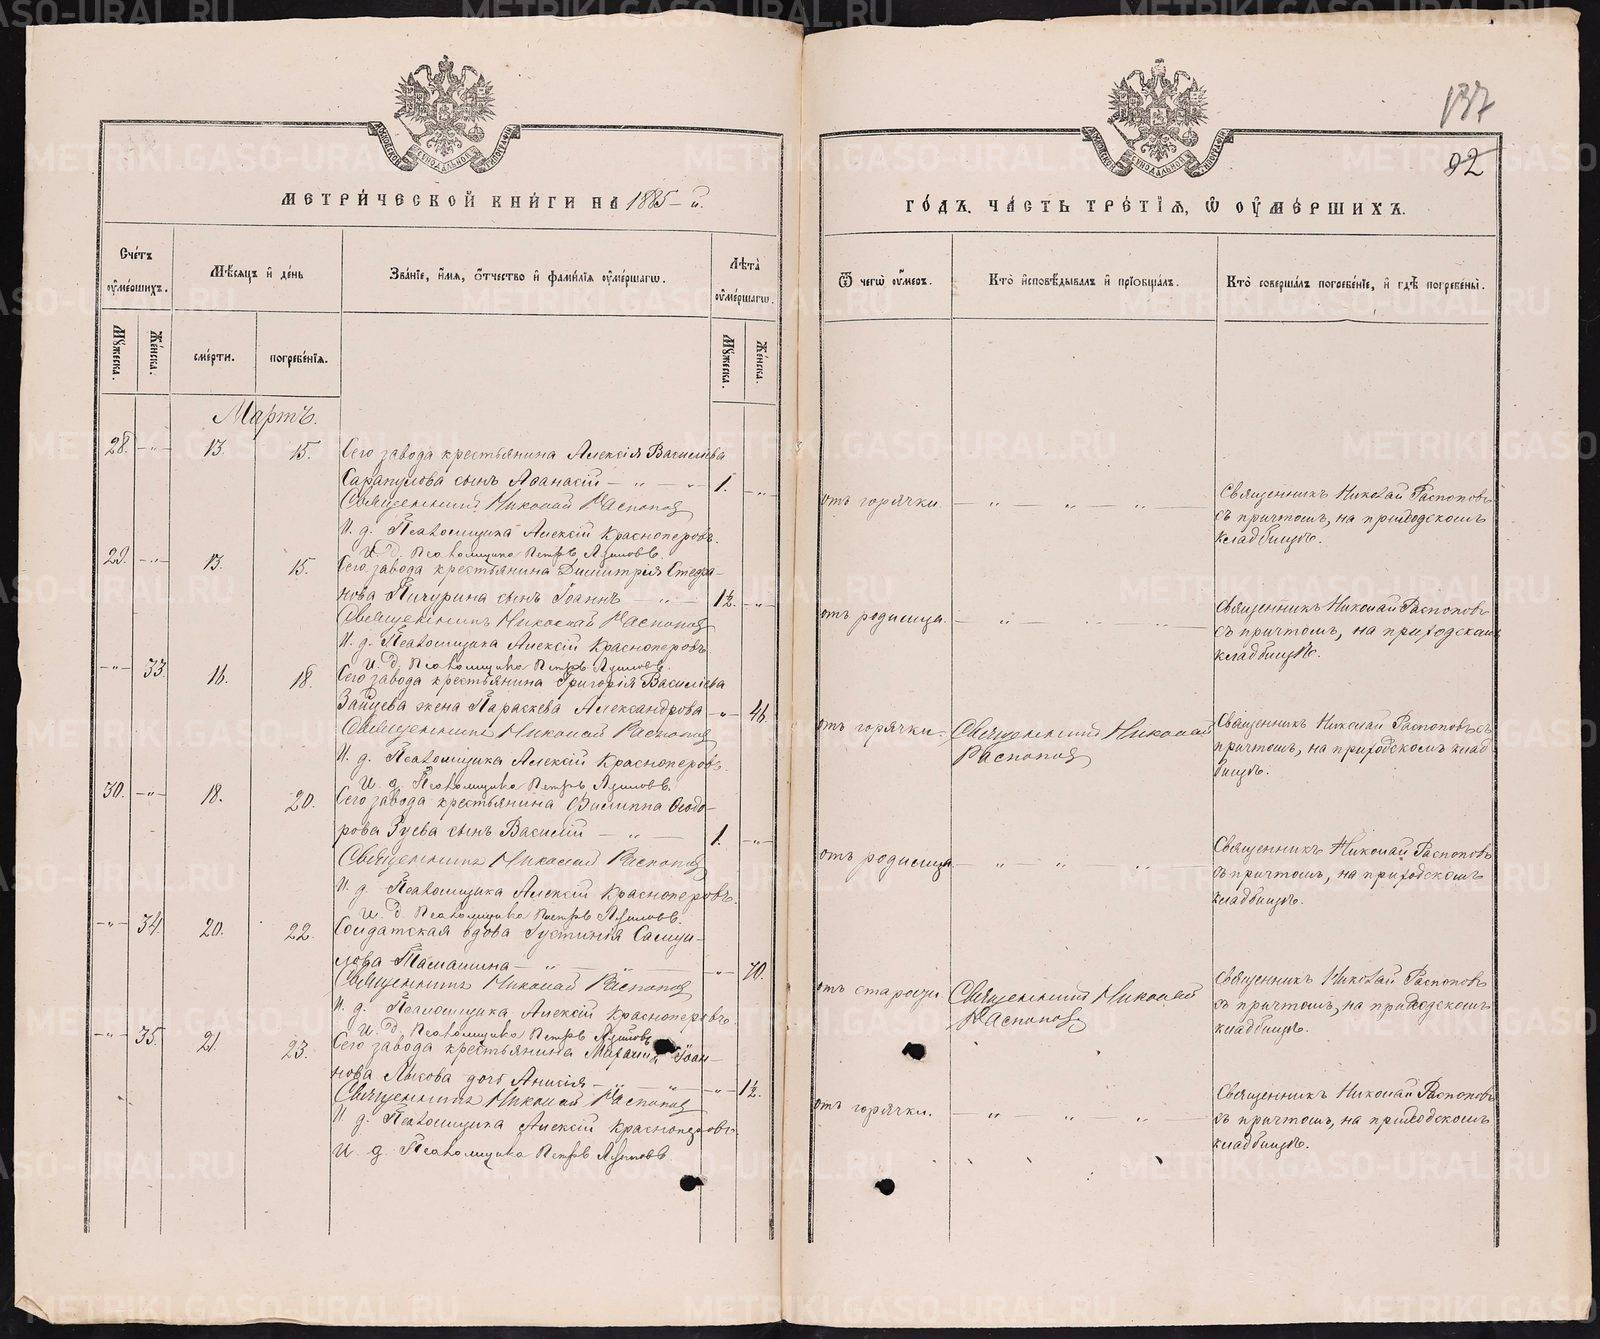 137
92
МЕТРИ́ЧЕСКОЙ КНИ́ГИ НА 1885-й.
ГО́ДЪ, ЧА́СТЬ ТРЕ́ТІѦ, Ѡ ОУ҆МЕ́РШИХЪ.
Сче́тъ оу҆ме́ршихъ.
Мѣ́сѧцъ и҆ де́нь
Зва́нїе, и҆́мѧ, ѻ҆́тчество и҆ фами́лїѧ оу҆ме́ршагѡ.
Лѣ́та оу҆ме́ршагѡ.
Ѿ чегѡ̀ оу҆́меръ.
Кто̀ и҆сповѣ́дывалъ и҆ прїѡбща́лъ.
Кто̀ соверша́лъ погребе́нїе, и҆ гдѣ̀ погребены̀.
Мꙋ́жеска.
Же́нска.
сме́рти.
погребе́нїѧ.
Мꙋ́жеска.
Же́нска.
Мартъ.
28. -"- 13. 15. Сего завода крестьянина Алексія Васильева
Сарапулова сынъ Аѳанасій - " - " - 1. -"-
Священникъ Николай Распоповъ
И. д. Псаломщика Алексій Красноперовъ.
И. д. Псаломщика Петръ
отъ горячки - " - " - "
Священникъ Николай Распоповъ
съ причтомъ, на приходскомъ
кладбищѣ.
29. -"- 13. 15. Сего завода крестьянина Димитрія Стефа-
нова Пичурина сынъ Іоаннъ - " - 1½. -"-
Священникъ Николай Распоповъ
И. д. Псаломщика Алексій Красноперовъ
И. д. Псаломщика Петръ
отъ родимца. - "
Священникъ Николай Распоповъ
съ причтомъ, на приходскомъ
кладбищѣ.
-"- 33. 16. 18. Сего завода крестьянина Григорія Васильева
Зайцева жена Параскева Александрова -"- 46.
Священникъ Николай Распоповъ
И. д. Псаломщика Алексій Красноперовъ.
И. д. Псаломщика Петръ
отъ горячки. Священникъ Николай
Распоповъ
Священникъ Николай Распоповъ съ
причтомъ, на приходскомъ клад
бищѣ.
30. -"- 18. 20. Сего завода крестьянина Филиппа Ѳеодо-
рова Зуева сынъ Василій - " - 1. -"-
Священникъ Николай Распоповъ
И. д. Псаломщика Алексій Красноперовъ.
И. д. Псаломщика Петръ
отъ родимца - " - " - "
Священникъ Николай Распоповъ
съ причтомъ, на приходскомъ
кладбищѣ.
-"- 34. 20. 22. Солдатская вдова Іустинія Самуи-
лова - " - " - -"- 70.
Священникъ Николай Распоповъ
И. д. Псаломщика Алексій Красноперовъ
И. д. Псаломщика Петръ
отъ старости Священникъ Николай
Распоповъ
Священникъ Николай Распоповъ
съ причтомъ, на приходскомъ
кладбищѣ.
-"- 35. 21. 23. Сего завода крестьянина Іоан-
нова Лысова дочь Анисія - " - " -"- 1½.
Священникъ Николай Распоповъ
И. д. Псаломщика Алексій Красноперовъ
И. д. Псаломщика Петръ
отъ горячки. - " - " - "
Священникъ Николай Распоповъ
съ причтомъ, на приходскомъ
кладбищѣ.
METRIKI.GASO-URAL.RU